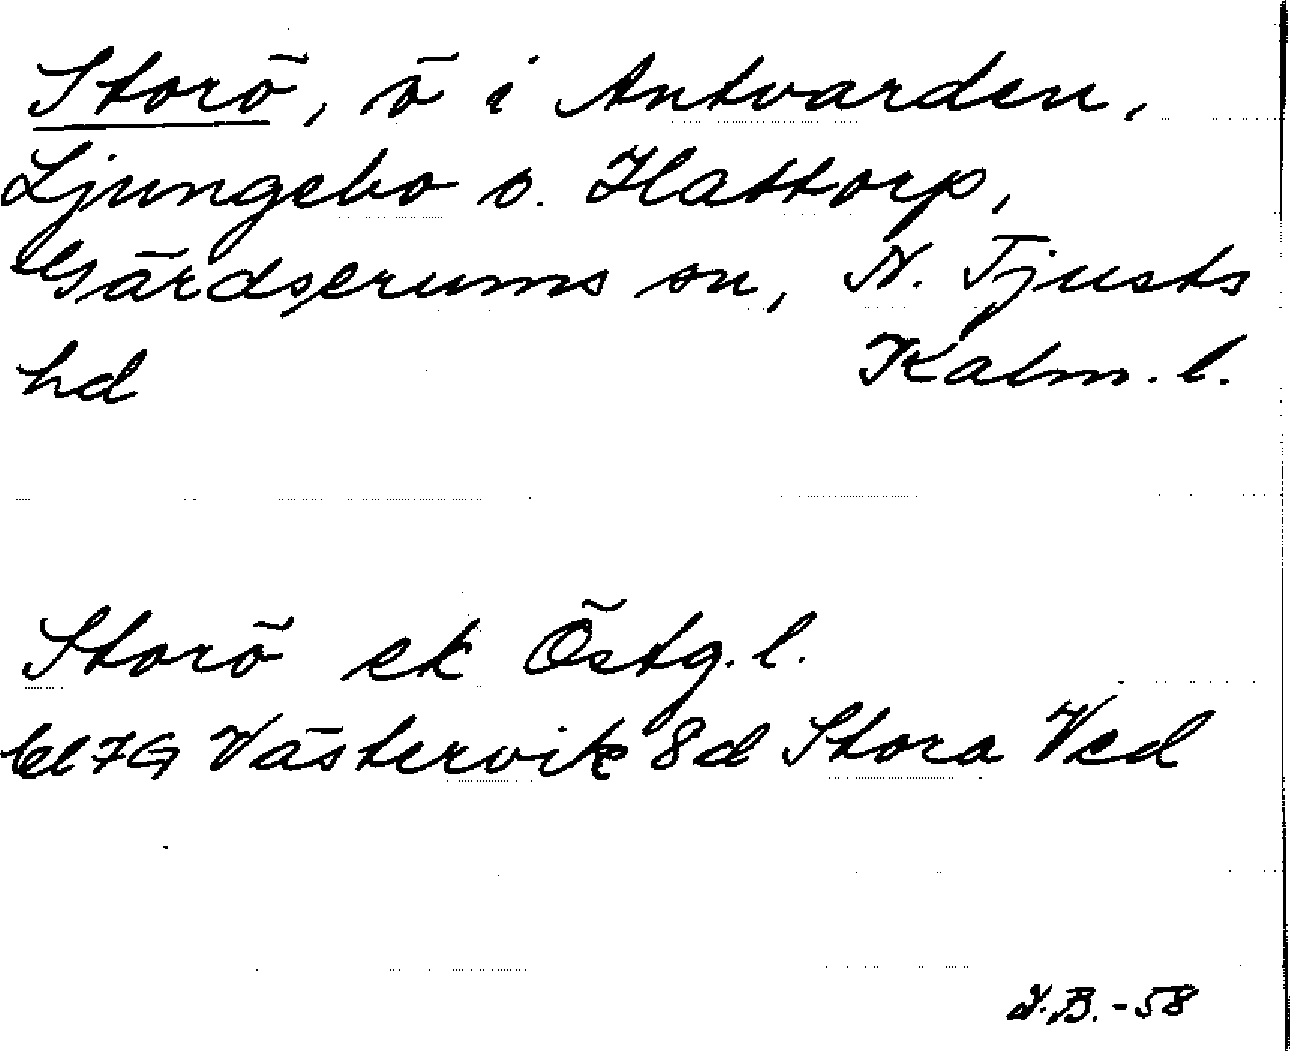 Storö, ö i Antvarden,
Ljungebo o. Hattorp,
Gärdserums sn, N. Tjusts
hd Kalm. l.
Storö ek Östg. l.
bl 7G Västervik 8d Stora Ved
I.B. -58